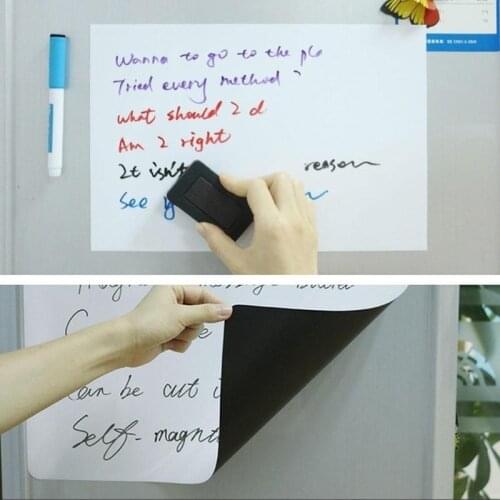 Wanna to go to the pla
Tried every method
what should 2 d
Am 2 right
2t isn't reason
See y
can be cut i
Self-magnt